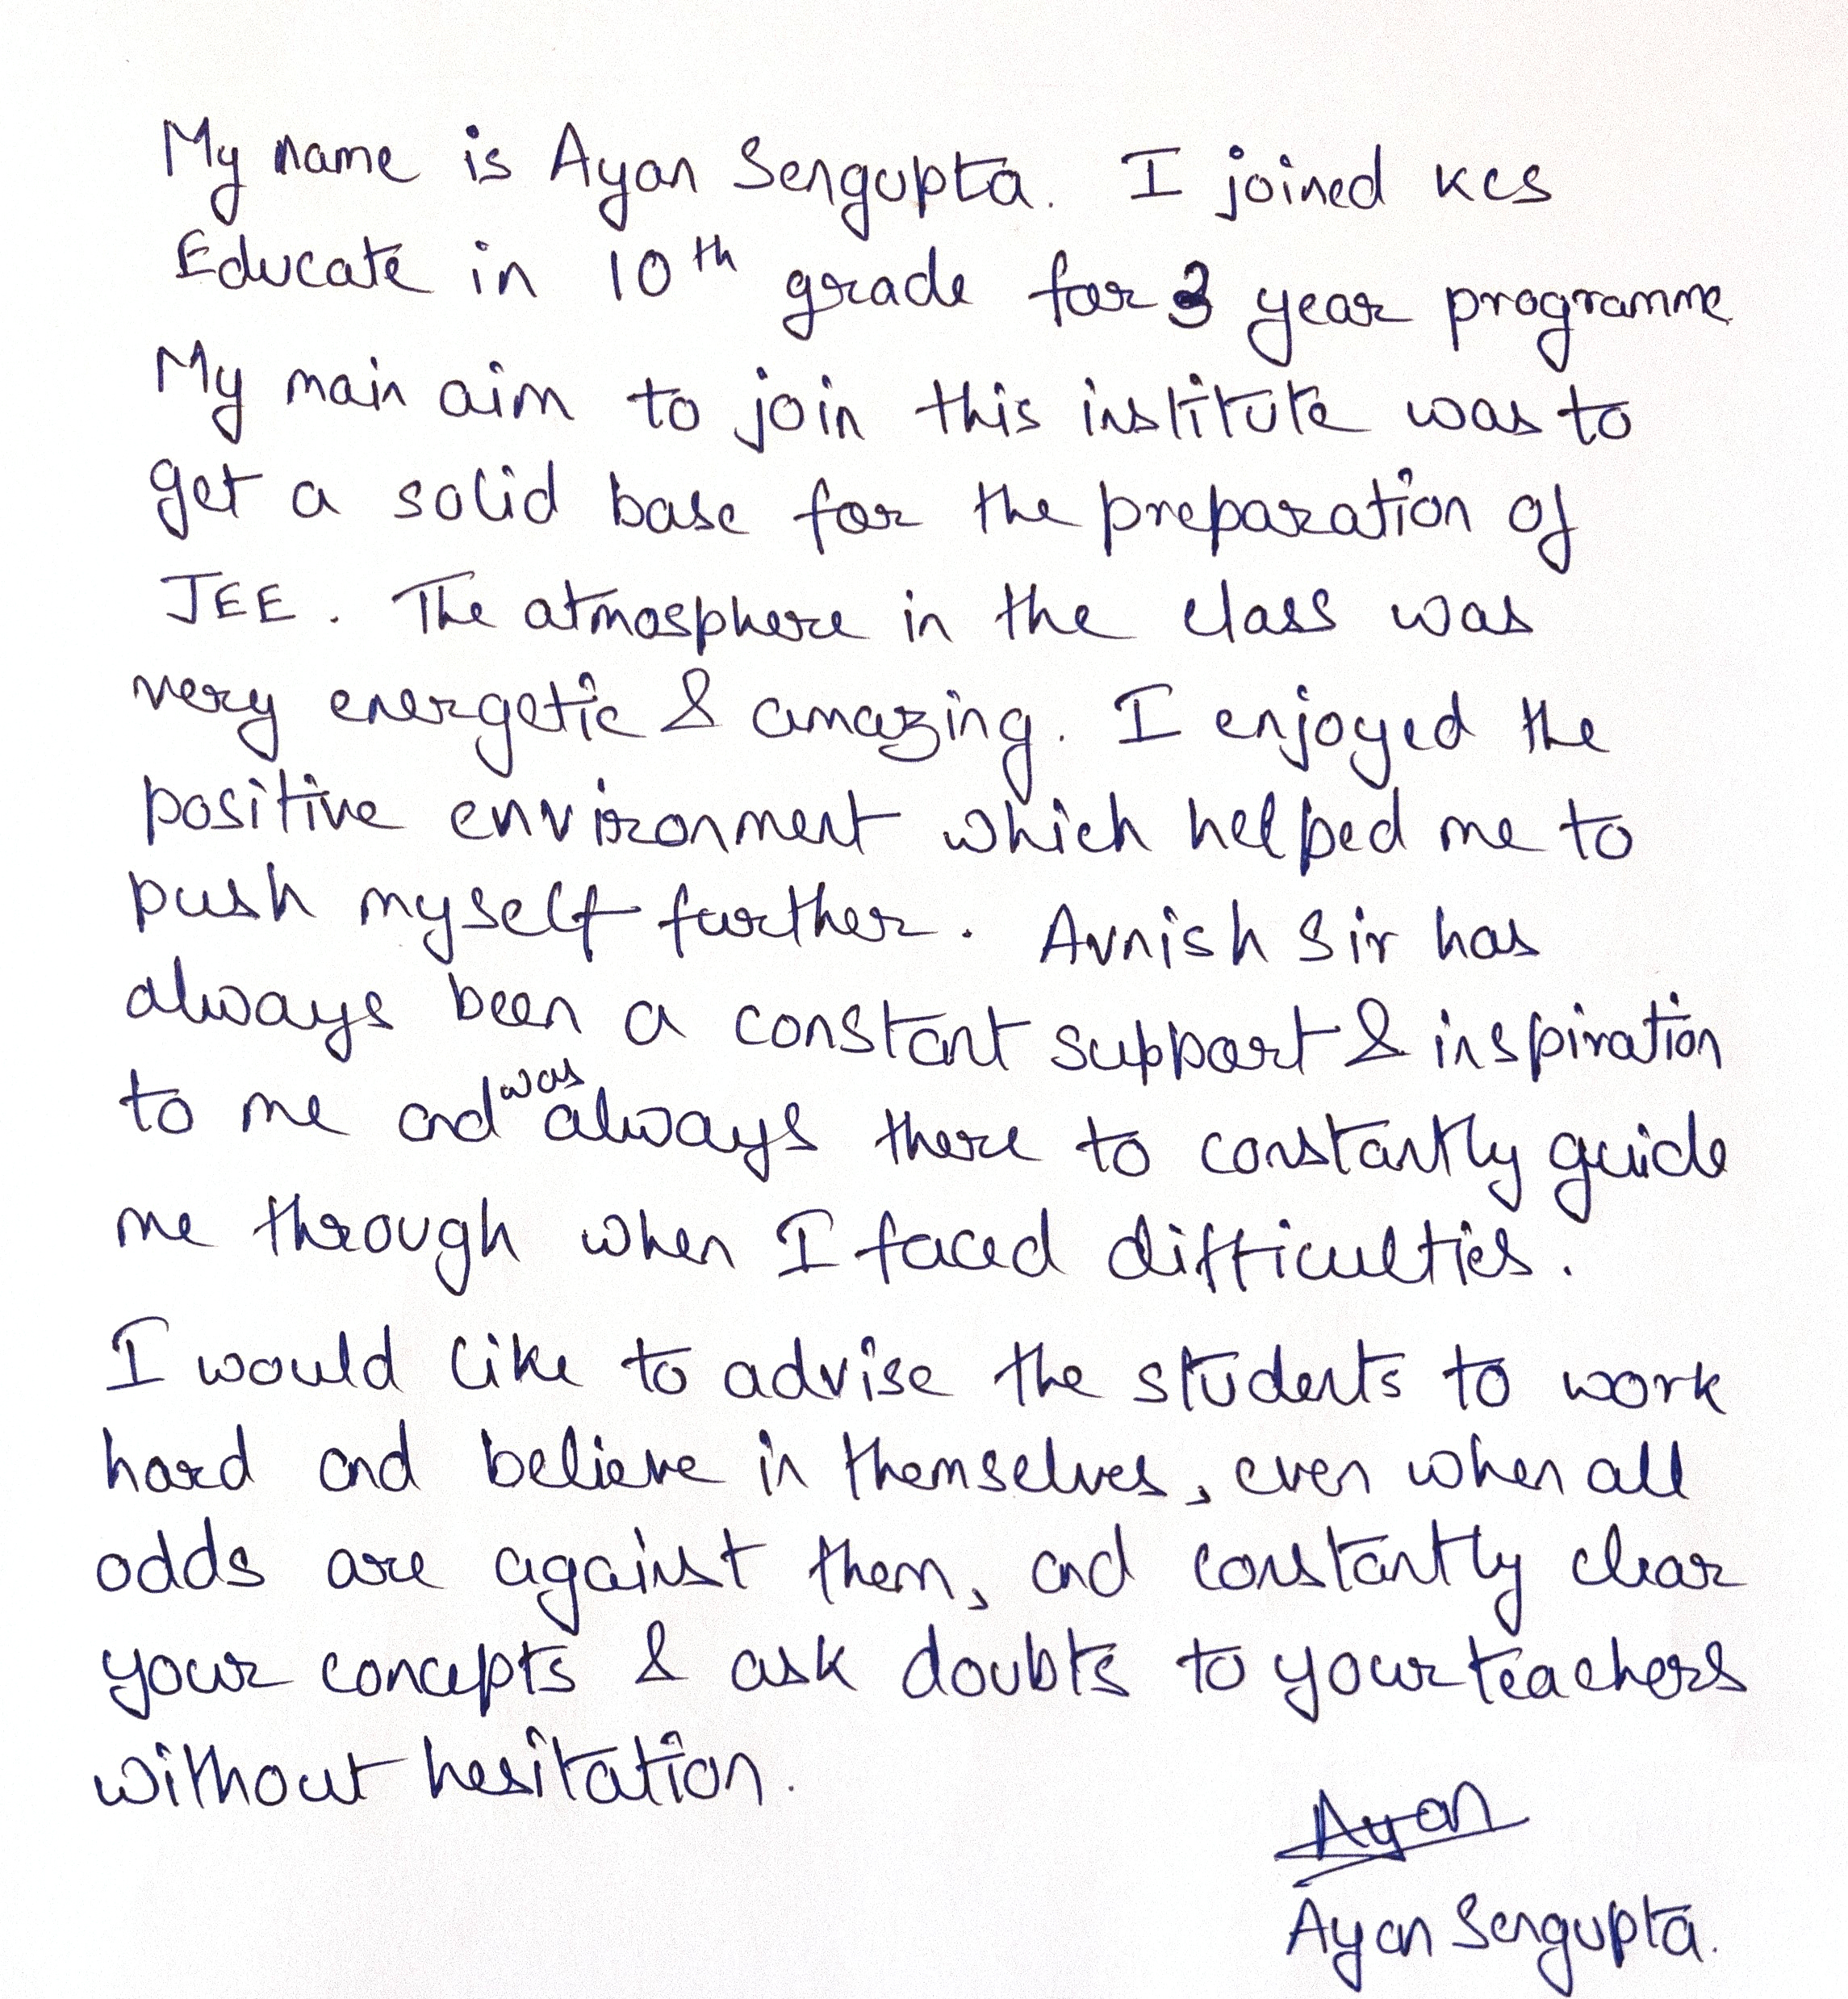 My name is Ayan Sengupta. I joined KCS
Educate in 10th grade for 3 year programme
My main aim to join this institute was to
get a solid base for the preparation of
JEE. The atmosphere in the class was
very energetic & amazing. I enjoyed the
positive environment which helped me to
push myself further. Avnish Sir has
always been a constant support & inspiration
to me and was always there to constantly guide
me through when I faced difficulties.
I would like to advise the students to work
hard and believe in themselves, even when all
odds are against them, and constantly clear
your concepts & ask doubts to your teachers
without hesitation.
Ayan
Ayan Sengupta.